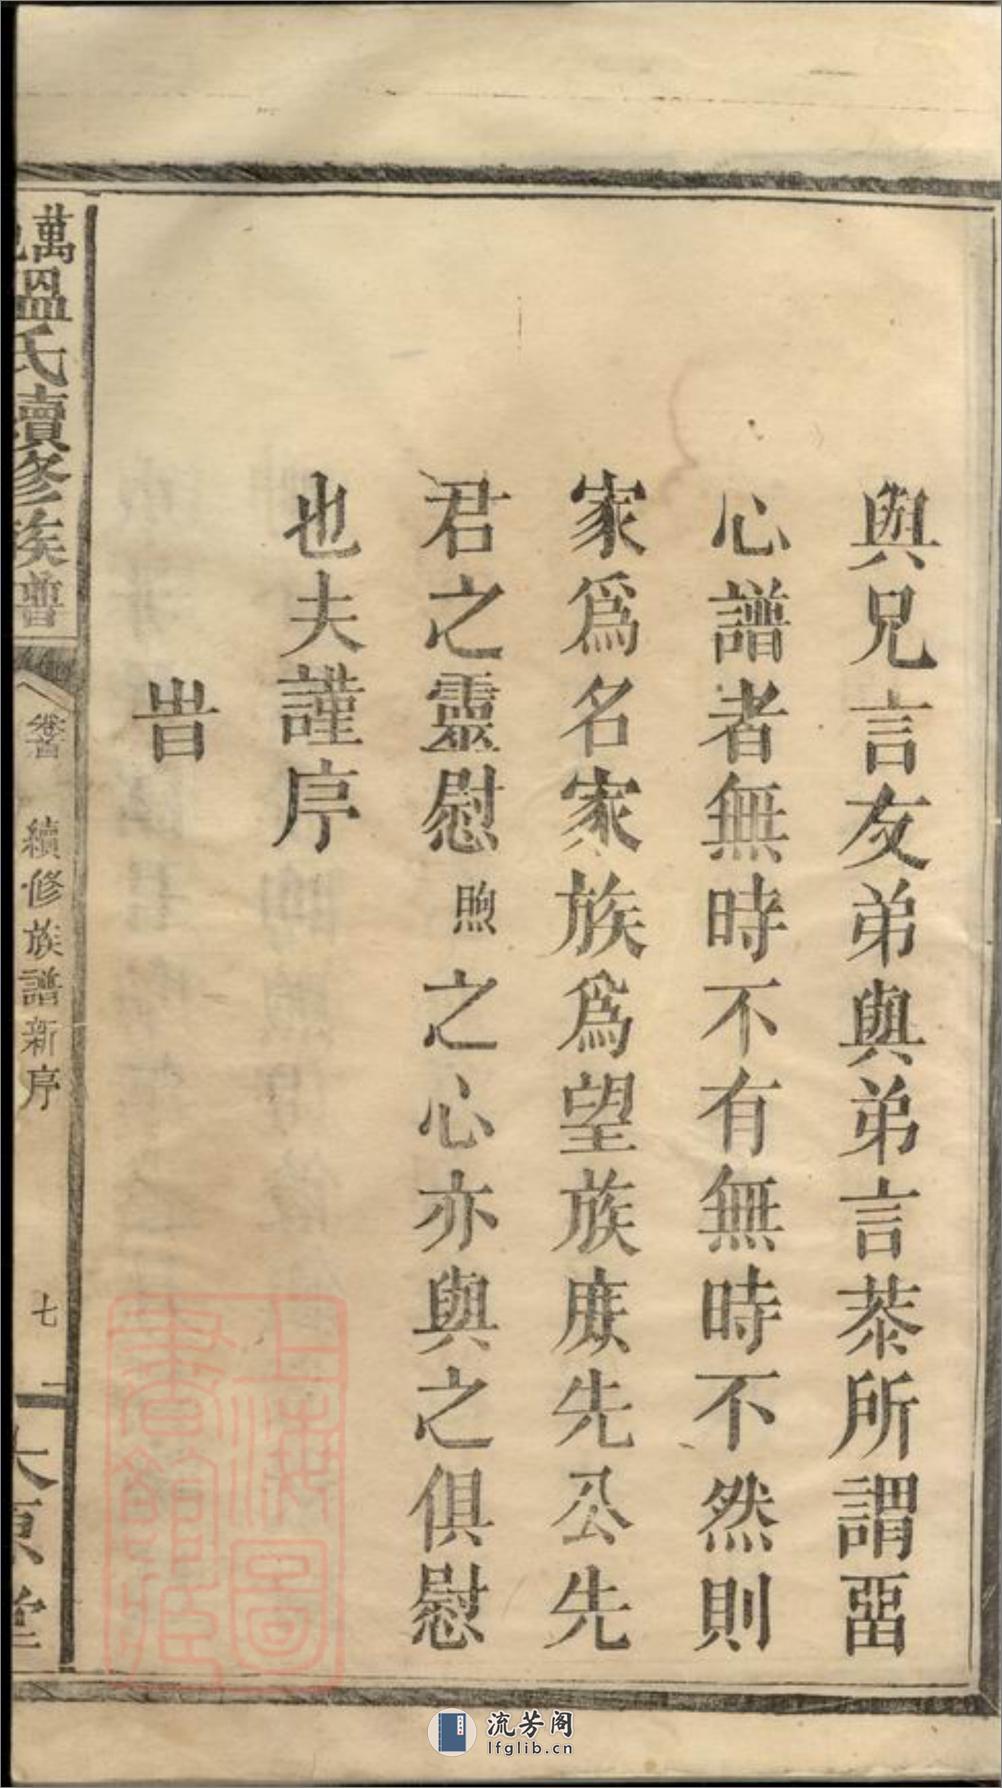 與兄言友弟與弟言恭所謂畱
心譜者無時不有無時不然則
家爲名家族爲望族庶先公先
君之靈慰煦之心亦與之俱慰
也夫謹序
旹
萬
溫氏續修族譜
卷首
續修族譜新序
七
太原堂
上海圖書館藏
流芳阁
lfglib.cn